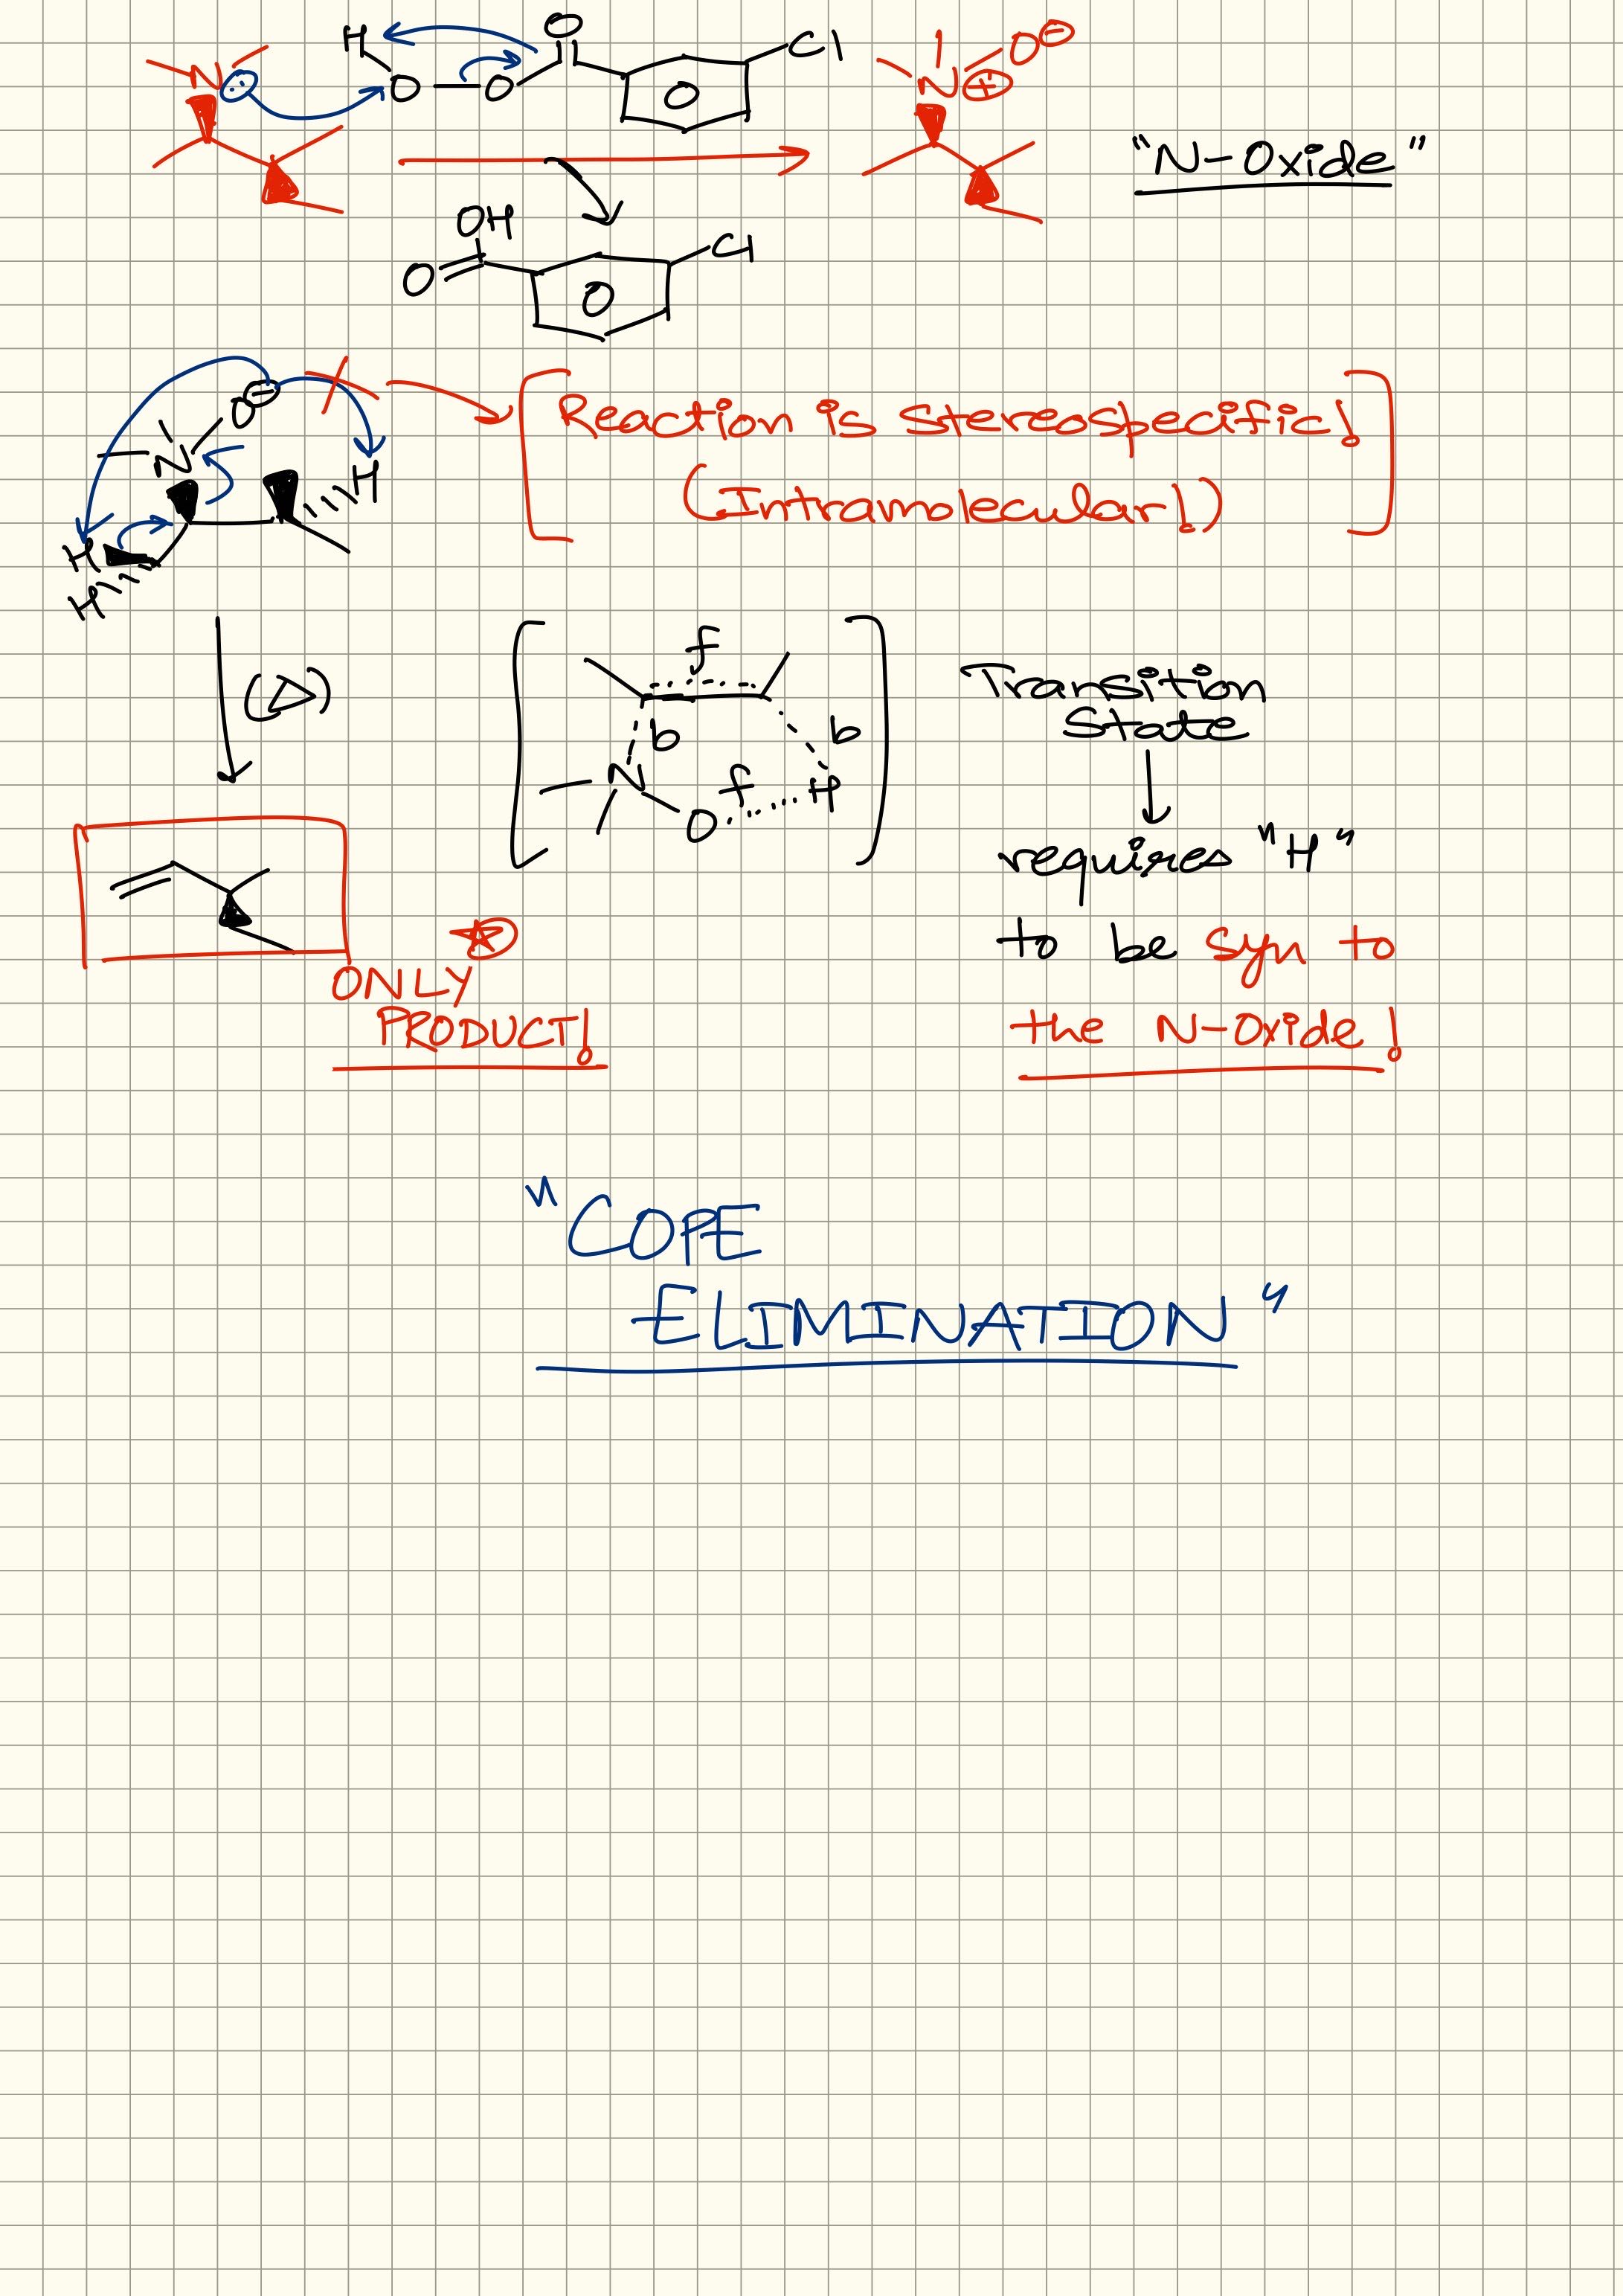 H O Cl O⊖
N O — O N⊕
"N-Oxide"
OH
O Cl
O⊖
N H
H
H
[Reaction is stereospecific!
(Intramolecular!)]
(△)
f
b b
N f H
O
Transition
State
requires "H"
to be syn to
the N-Oxide!
ONLY
PRODUCT!
"COPE
ELIMINATION"